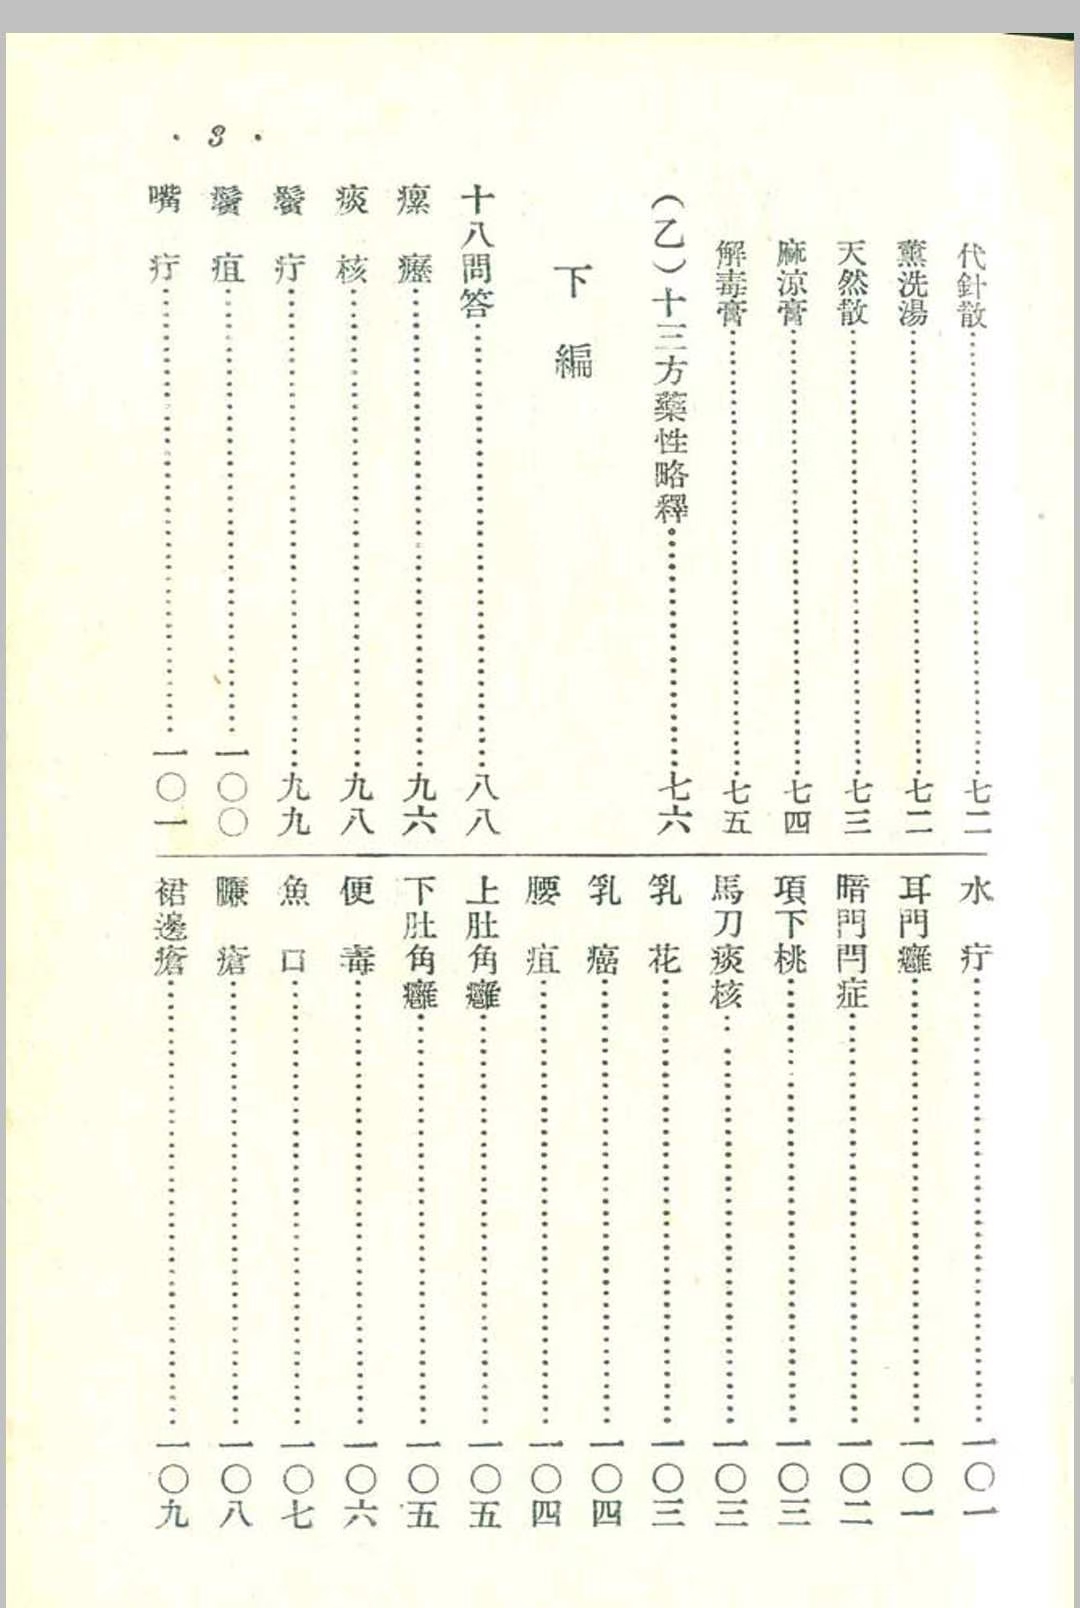 · 3 ·
代針散 七二
薰洗湯 七二
天然散 七三
麻涼膏 七四
解毒膏 七五
(乙)十三方藥性略釋 七六
下 編
十八問答 八八
瘰癧 九六
痰核 九八
鬢疔 九九
鬢疽 一〇〇
嘴疔 一〇一
水疔 一〇一
耳門癰 一〇一
暗門閂症 一〇二
項下桃 一〇三
馬刀痰核 一〇三
乳花 一〇三
乳癌 一〇四
腰疽 一〇四
上肚角癰 一〇五
下肚角癰 一〇五
便毒 一〇六
魚口 一〇七
臁瘡 一〇八
裙邊瘡 一〇九